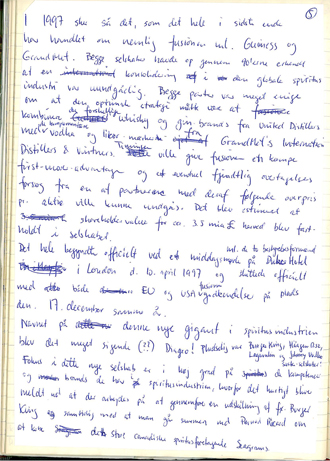 5
I 1997 ske så det, som det hele i sidste ende
har handlet om nemlig fusionen ml. Guiness og
GrandMet. Begge selskaber havde op gennem 90'erne erkendt
at en konsolidering af i den globale spiritus
industri var uundgåelig. Begge parter var meget enige
om at den optimale strategi måtte være at
kombinere whisky og gin brands fra United Distillers
med vodka og likør-mærkerne fra GrandMet's International
Distillers & Vintners. ville give fusionen et kæmpe
first-move-advantage og et eventuel fjendtlig overtagelses
forsøg fra en af parterne med deraf følgende overpris
pr. aktie ville kunne undgås. Det blev estimeret at
shareholdervalue for ca. 3.5 mia £ herved blev fast-
holdt i selskabet.
Det hele begyndte officielt ved et middagsmøde på Dukes Hotel
ml. de to bestyrelsesformænd
i London d. 10. april 1997 og sluttede officielt
med både EU og USA godkendelse på plads
fusion
den 17. december samme år.
Navnet på denne nye gigant i spiritusindustrien
blev det meget sigende (?!) Diageo! Pludselig var Burger King, Häagen Dazs,
Lagavulin og Johnny Walker
Fokus i dette nye selskab er i høj grad på de kompetencer
og brands de har i spiritusindustrien, hvorfor det hurtigt blev
meldt ud at der arbejdes på at gennemføre en udskilning af fx Burger
King og samtidig med at man går sammen med Pernod Ricard om
at købe det store canadiske spiritusforetagende Seagrams.